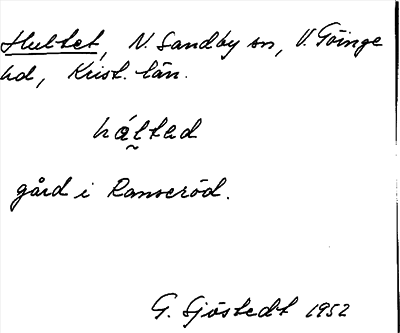 Hultet, N. Sandby sn, V. Göinge
hd, Krist. län.
hál̰təd
gård i Ranseröd.
G. Sjöstedt 1952